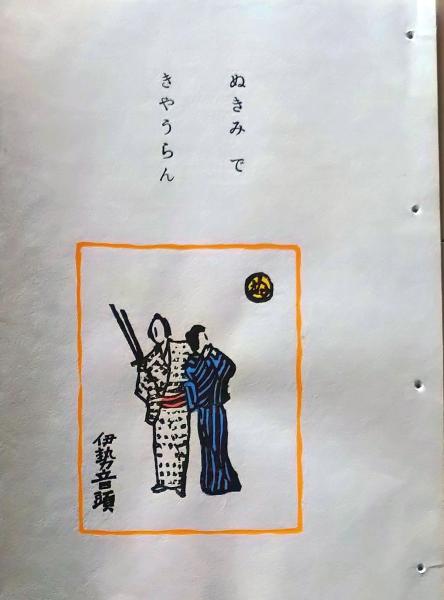 ぬきみで
きやうらん
伊勢音頭